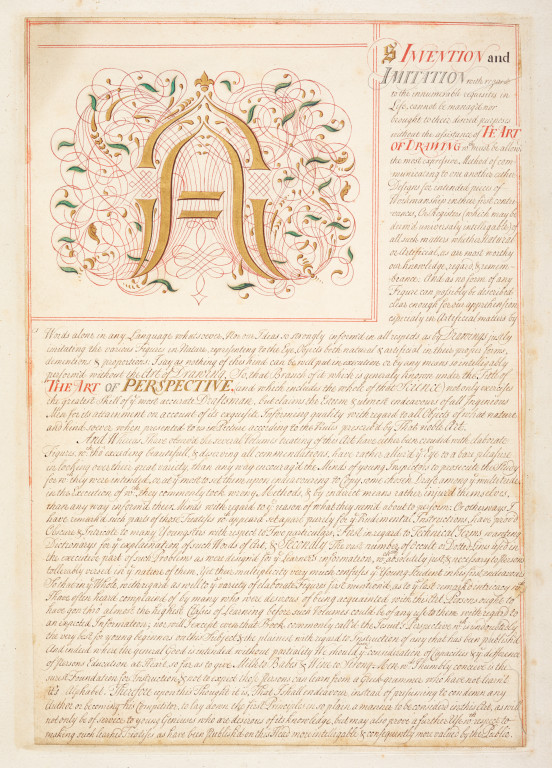 A
S INVENTION and
IMITATION with regard
to the innumerable requisites in
Life, cannot be manag'd nor
brought to their desired purposes
without the assistance of THE ART
OF DRAWING wch must be allow'd
the most expressive Method of com-
municating to one another either
Designs for intended pieces of
Workmanship in their first contri-
vances, Or Registers (which may be
deem'd universaly intelligable) of
all such matters whether Natural
or Artificial, as are most worthy
our knowledge, regard, & remem-
brance. And as no form of any
Figure can possibly be described
clear enough for our apprehension
especialy in Artificial matters by
Words alone in any Language whatsoever, Nor our Ideas so strongly inform'd in all respects as by Drawings justly
imitating the various Figures in Nature, representing to the Eye Objects both natural & artificial in their proper forms,
dimentions & proportions. I say as nothing of this kind can be well put in execution or by any means so intelligably
perform'd without the Art of Drawing, So, that Branch of it which is generaly known under the Title of
THE ART OF PERSPECTIVE, and which includes the whole of that Science, not only exercises
the greatest Skill of ye most accurate Draftsman, but claims the Esteem & utmost endeavours of all Ingenious
Men for its attainment on account of its exquisite Informing quality with regard to all Objects of what nature
and kind soever when presented to us in Picture according to the Rules prescrib'd by That noble Art.
And Whereas I have observ'd the several Volumes treating of this Art have either been crouded with elaborate
Figures, wch tho exceeding beautifull & deserving all commendations, have rather allur'd ye Eye to a bare pleasure
in looking over their great variety, than any way encourag'd the Minds of young Inspectors to prosecute the Study
for wch they were intended, or at ye most to set them upon endeavouring to Copy some chosen Desn among ye multitude
in the Execution of wch they commonly took wrong Methods, & by indirect means rather injur'd themselves,
than any way inform'd their Minds with regard to ye reason of what they were about to perform; Or otherways I
have remark'd such parts of those Treatises wch appear'd set apart purely for ye Rudemental Instructions, have prov'd
Obscure & Intricate to many Youngsters with respect to Two particulars, First in regard to Technical Terms wanting
Dictionarys for ye explanation of such Words of Art, & Secondly The vast number of Occult or Dotted Lines used in
the executive part of such Problems as were design'd for ye Learner's information, wch absolutely just & necessary to Persons
tollerably vers'd in ye nature of them, Yet their multiplicity very much confuses ye Young Student in his first endeavours
I have often heard complained of by many who were desirous of being acquainted with this Art. Persons ought to
have gon thro' almost the highest Classes of Learning before such Volumes could be of any use to them with regard to
an expected Information; nor will I except even that Book, commonly call'd the Jesuit's Perspective, wch is unsuspectedly
the very best for young beginners on this Subject & the plainest with regard to Instruction of any that has been publish'd.
And indeed where the general Good is intended without partiality We should ye consideration of Capacities & ye difference
of Persons Education at Heart so far as to give Milk to Babes & Meat to Strong Men, wch I humbly conceive is the
surest Foundation for Instruction, & not to expect those Persons can learn from a Greek grammar who have not learn'd
its Alphabet. Therefore upon this Thought it is, That I shall endeavour instead of presuming to condemn any
Author or becoming his Competitor, to lay down the first Principles in so plain a manner to be consider'd in this Art, as will
not only be of service to young Geniuses who are desirous of its knowledge, but may also prove a further Use wth respect to
making such learned Treatises as have been Publish'd on this Head more intelligable & consequently more valued by the Publick.